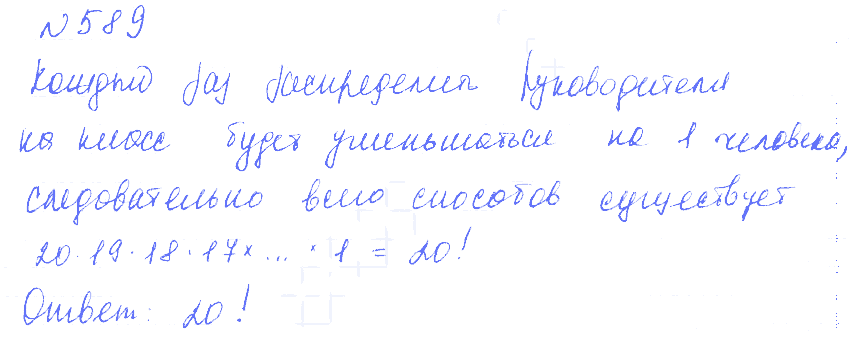 № 589
Каждый раз распределить руководителя
на класс будет уменьшаться на 1 человека,
следовательно всего способов существует
20 · 19 · 18 · 17 × ... · 1 = 20!
Ответ: 20!